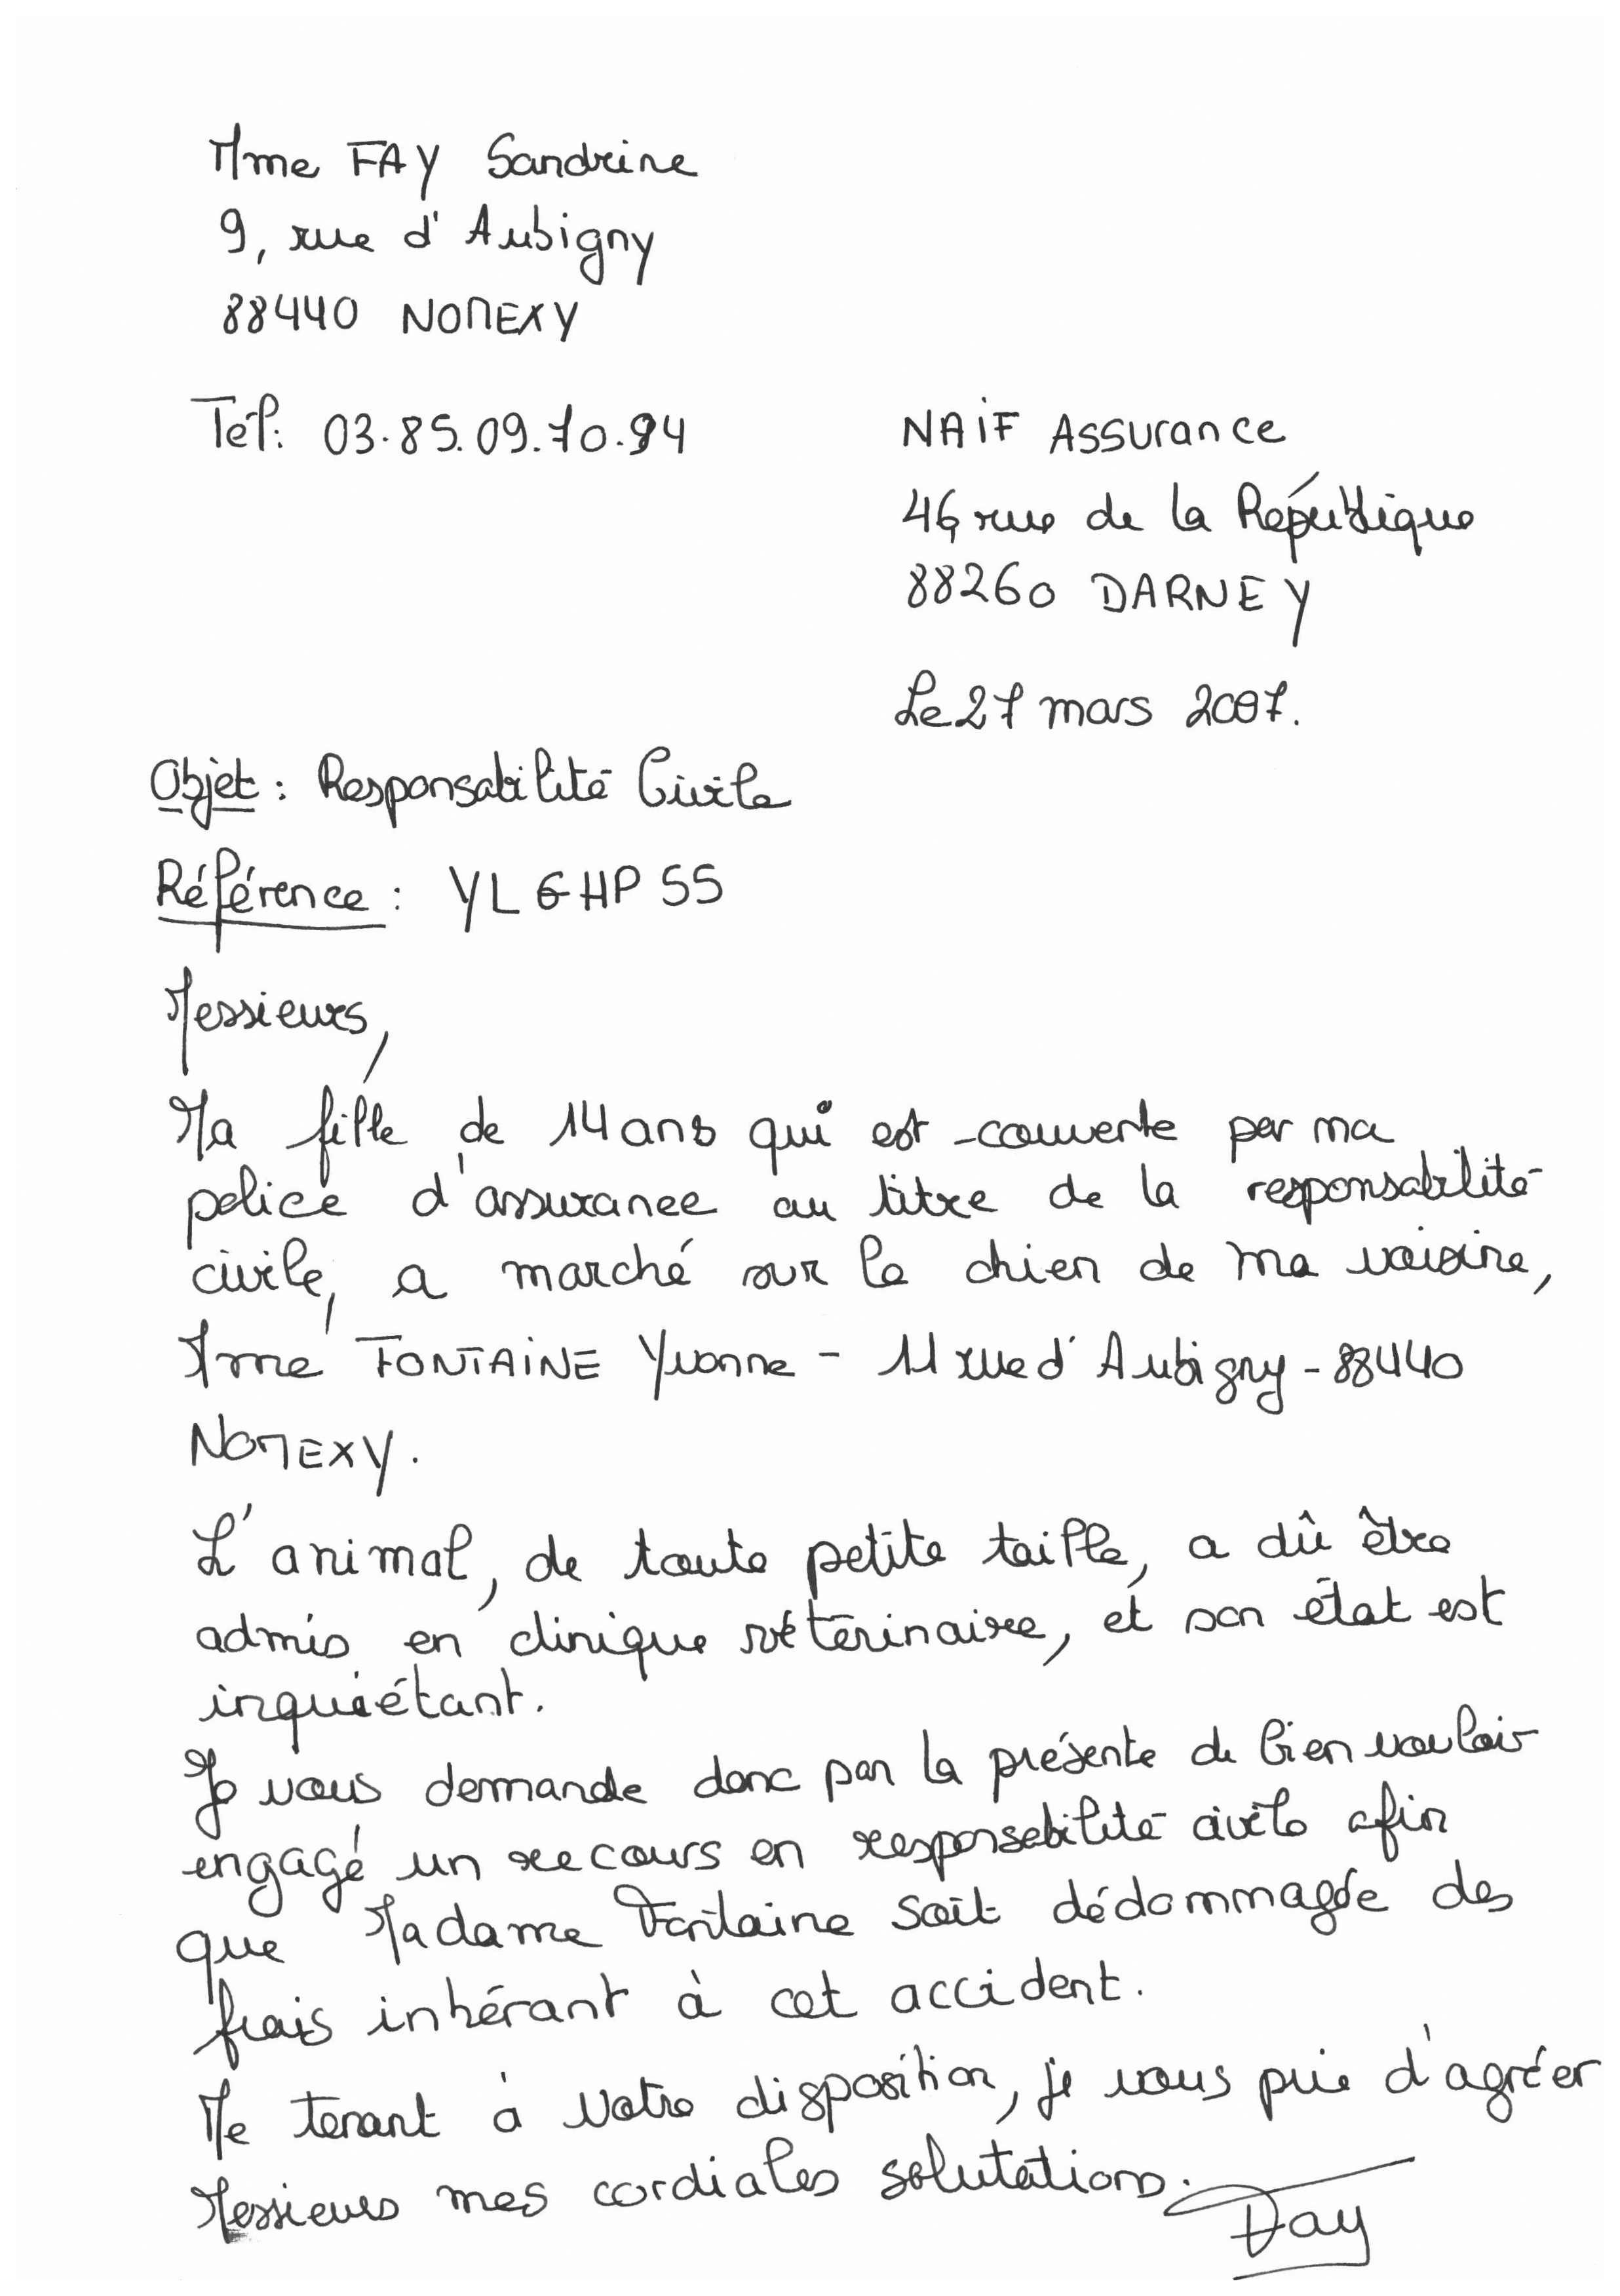 Mme FAY Sandrine
9, rue d'Aubigny
88440 NOMEXY
Tél: 03.85.09.70.94
NAIF Assurance
46 rue de la République
88260 DARNEY
Le 27 mars 2007.
Objet : Responsabilité Civile
Référence : YLGHP55
Messieurs,
Ma fille de 14 ans qui est couverte par ma
police d'assurance au titre de la responsabilité
civile, a marché sur le chien de ma voisine,
Mme FONTAINE Yvonne - 11 rue d'Aubigny - 88440
NOMEXY.
L'animal, de toute petite taille, a dû être
admis en clinique vétérinaire, et son état est
inquiétant.
Je vous demande donc par la présente de bien vouloir
engagé un recours en responsabilité civile afin
que Madame Fontaine soit dédommagée des
frais inhérant à cet accident.
Me tenant à votre disposition, je vous prie d'agréer
Messieurs mes cordiales salutations.
Fay